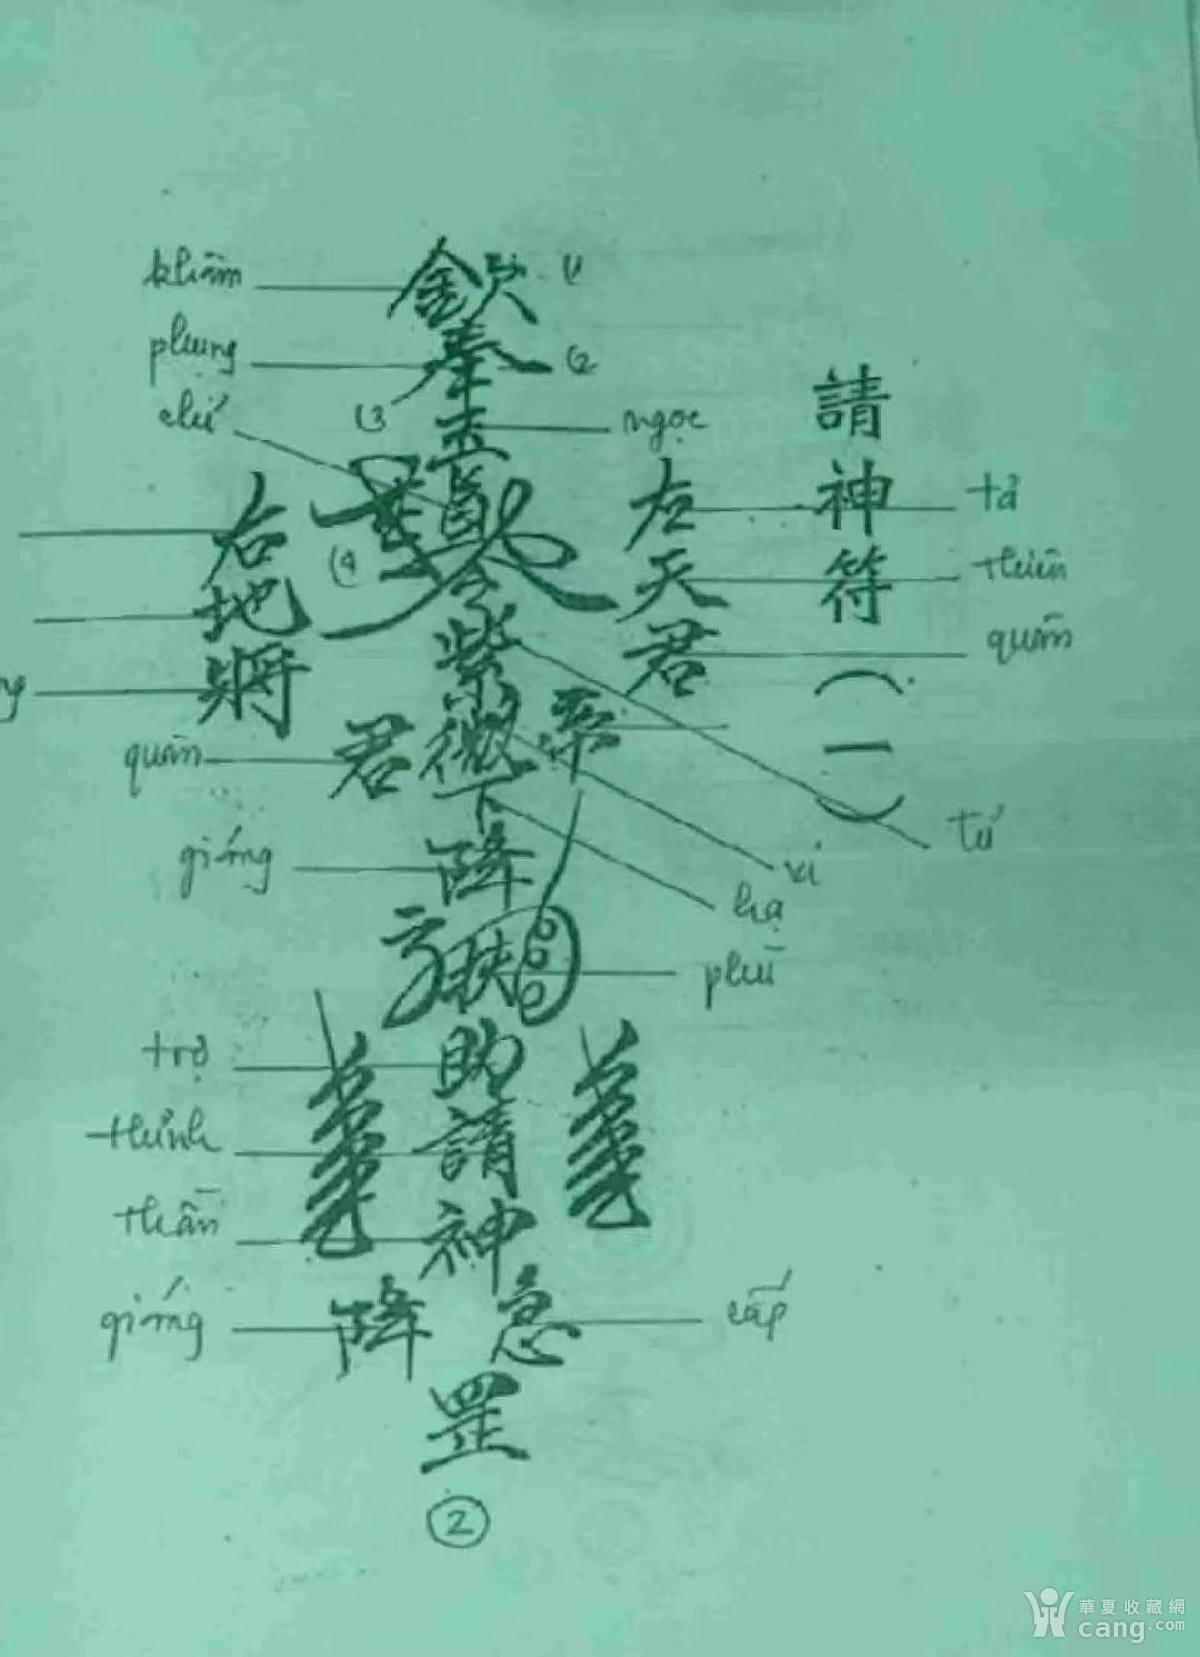 請神符(一)
khâm
欽
(1
phụng
奉
(2
(3
chỉ
玉
ngọc
旨
(4
左天君
tả
thiên
quân
右地將
紫微
tử
vi
君
quân
率
下
hạ
降
giáng
扶
phù
助
trợ
請
thỉnh
神
thần
降
giáng
急
cấp
罡
2
華夏收藏網
cang.com